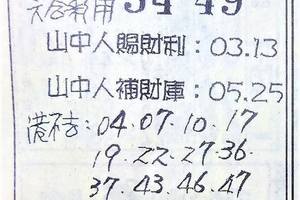 天合氣用 34 49
山中人賜財利：03.13
山中人補財庫：05.25
港不去：04.07.10.17
19.22.27.36.
37.43.46.47